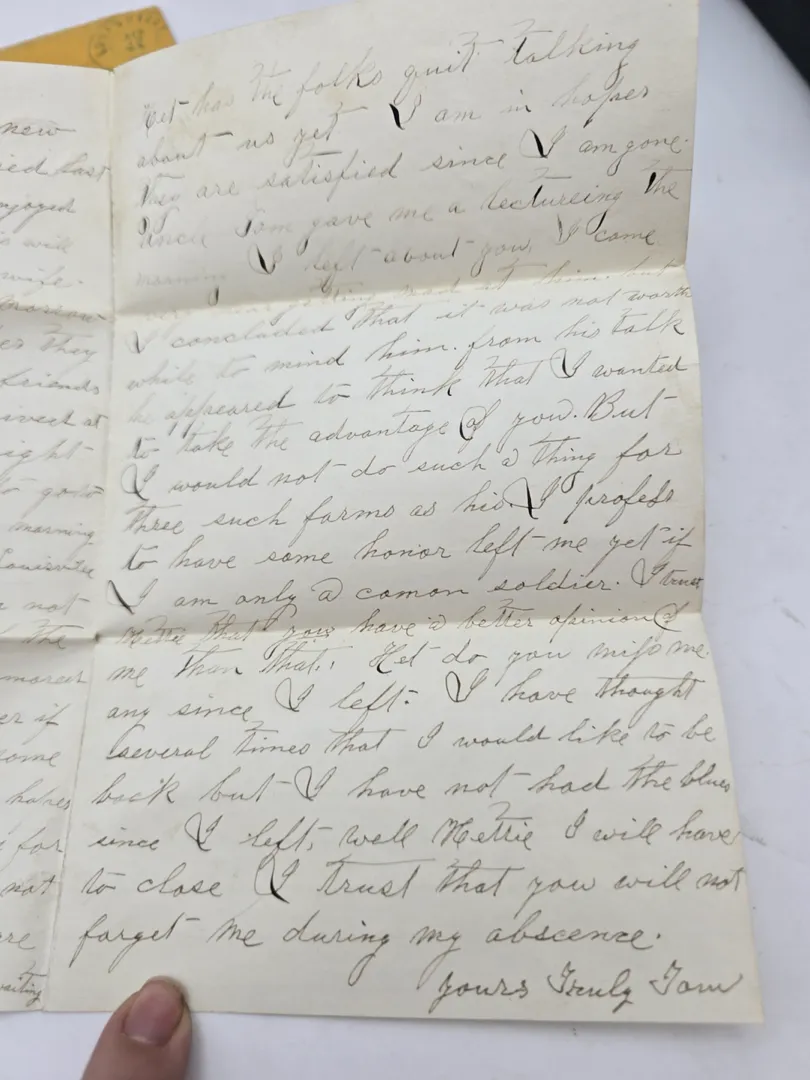 new
last
enjoyed
will
wife.
morrow
they
friends
at
to go to
morning
Louisville
not
the
if
some
for
not
Het has the folks quit talking
about us yet I am in hopes
they are satisfied since I am gone.
Uncle Tom gave me a lectureing the
morning I left about you, I come
mad at him. but
I concluded that it was not worth
while to mind him. from his talk
he appeared to think that I wanted
to take the advantage of you. But
I would not do such a thing for
three such farms as his. I profess
to have some honor left me yet if
I am only a comon soldier. I trust
Hettie that you have a better opinion of
me than that. Het do you miss me.
any since I left. I have thought
several times that I would like to be
back but I have not had the blues
since I left, well Hettie I will have
to close I trust that you will not
forget me during my abscence.
yours Truly Tom